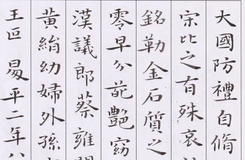 大國防禮自脩
宗比之有殊哀
銘勒金石質之
零早分葩艷窈
漢議郎蔡雍
黃絹幼婦外孫
王叵昇平二年八